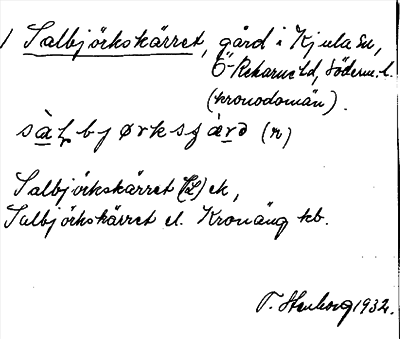 1 Salbjörkskärret, gård i Kjula sn,
Ö-Rekarne hd, Söderm. l.
(kronodomän).
sàɫbjørksɟæ̀rə (n)
Salbjörkskärret (H) ek,
Salbjörkskärret el. Kronäng kb.
T. Stenborg 1932.